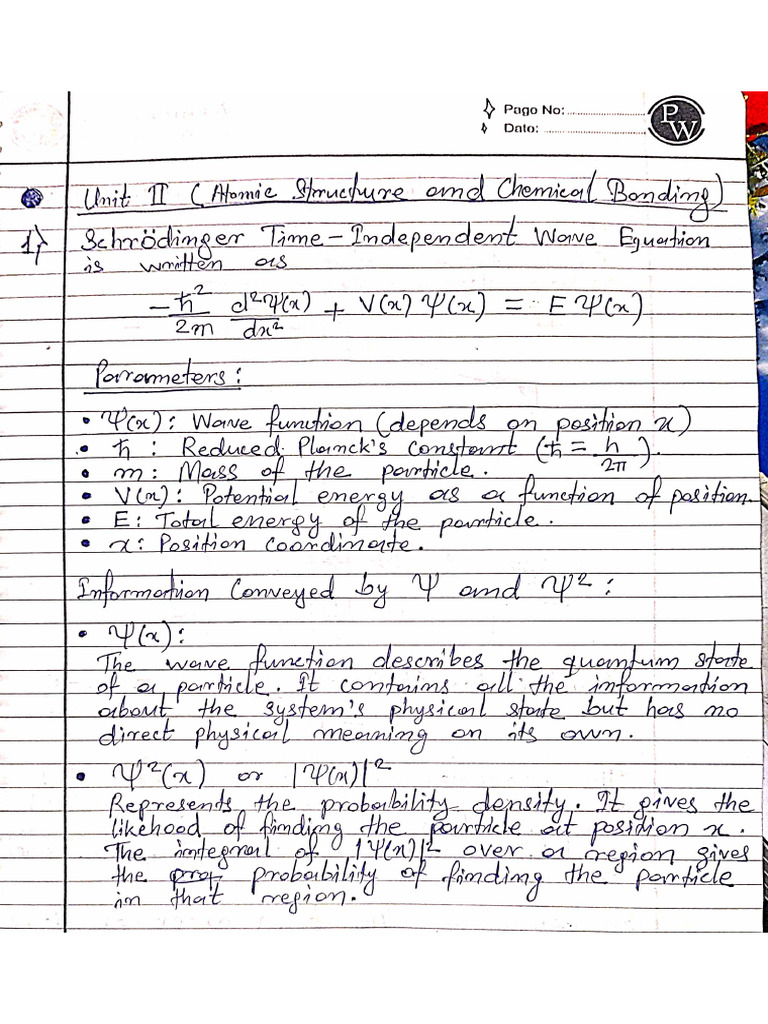 Page No:
Date:
PW
Unit II (Atomic Structure and Chemical Bonding)
1) Schrödinger Time-Independent Wave Equation
is written as
-ħ²/2m d²Ψ(x)/dx² + V(x) Ψ(x) = E Ψ(x)
Parameters:
• Ψ(x): Wave function (depends on position x)
• ħ: Reduced Planck's constant (ħ = h/2π).
• m: Mass of the particle.
• V(x): Potential energy as a function of position.
• E: Total energy of the particle.
• x: Position coordinate.
Information Conveyed by Ψ and Ψ²:
• Ψ(x):
The wave function describes the quantum state
of a particle. It contains all the information
about the system's physical state but has no
direct physical meaning on its own.
• Ψ²(x) or |Ψ(x)|²
Represents the probability density. It gives the
likehood of finding the particle at position x.
The integral of |Ψ(x)|² over a region gives
the probability of finding the particle
in that region.